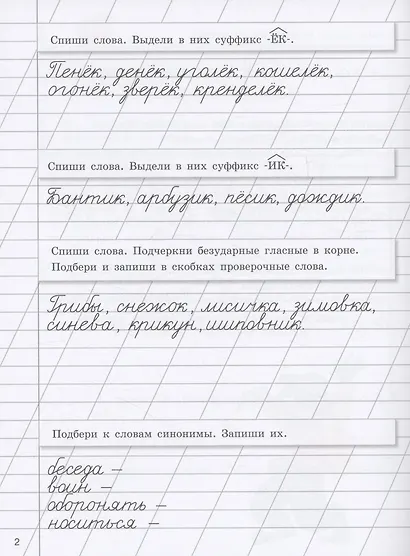 Спиши слова. Выдели в них суффикс -ЁК-.
Пенёк, денёк, уголёк, кошелёк,
огонёк, зверёк, кренделёк.
Спиши слова. Выдели в них суффикс -ИК-.
Бантик, арбузик, пёсик, дождик.
Спиши слова. Подчеркни безударные гласные в корне.
Подбери и запиши в скобках проверочные слова.
Грибы, снежок, лисичка, зимовка,
синева, крикун, шиповник.
Подбери к словам синонимы. Запиши их.
беседа –
воин –
оборонять –
носиться –
2